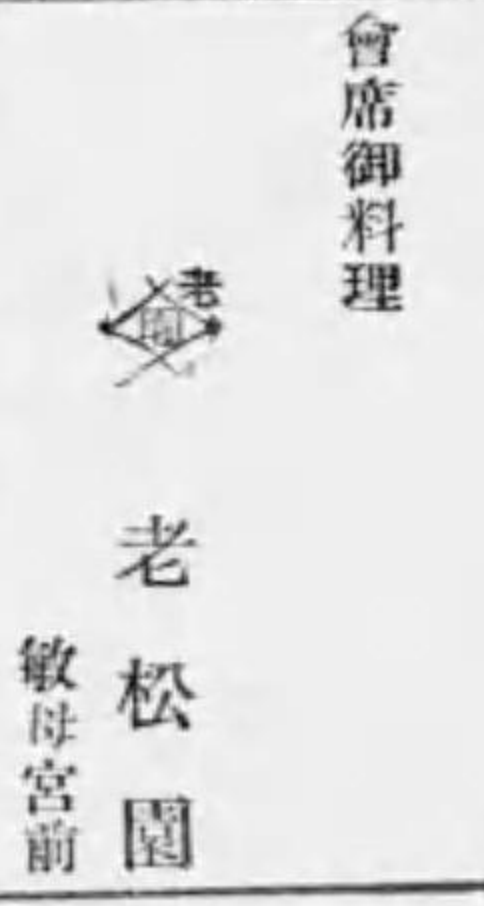 會席御料理
老
園
老松園
敏母宮前